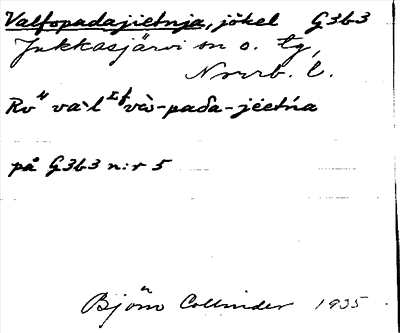 Valfopadajietnja, jökel G3b3
Jukkasjärvi sn o. tg,
Norrb. l.
Rv va`l vèò-paδa-jëetńa
på G3b3 n:r 5
Björn Collinder 1935